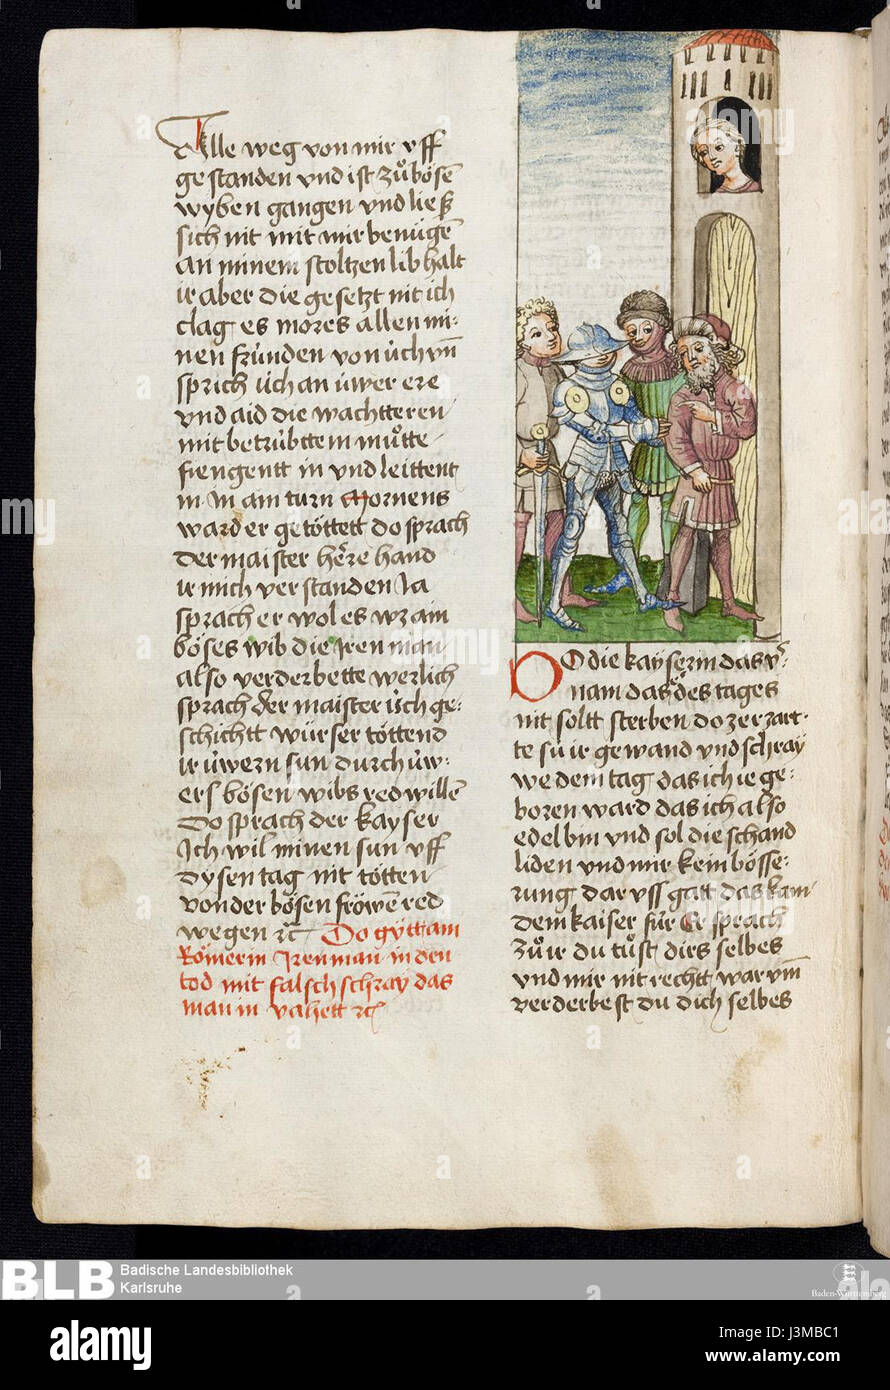 Alle weg von mir vff
gestanden vnd ist zůbösē
wyben gangen vnd ließ
sich nit mit mir benůgē
an minem stoltzen lib halt
ir aber die gesetzt nit ich
clag es mores allen mi-
nen frúnden von úch vn̄
sprich úch an úwer ere
vnd aid die wachtteren
mit betrúbttem můtte
fiengentt in vnd leittent
in In am turn Mornens
ward er getöttett do sprach
der maister here hand
ir mich verstanden Ja
sprach er wol es wz ain
böses wib die Iren man
also verderbette werlich
sprach der maister úch ge-
schichtt würser töttend
ir úwern sun durch úw-
ers bösen wibs red willē
Do sprach der kayser
Ich wil minen sun vff
dysen tag nit tötten
von der bösen fröwē red
wegen ꝛc Do gytt ain
Römerin Iren man in den
tod mit falsch schray das
man in vahett ꝛc
DO die kayserin das v̄-
nam das des tages
nit soltt sterben do zerzart-
te su ir gewand vnd schray
we dem tag das ich ie ge-
boren ward das ich also
edel bin vnd sol die schand
liden vnd mir kein bösse-
rung dar vss gatt das kam
dem kaiser für Er sprach
zů ir du tůst dirs selbes
vnd mir nit rechtt war vm̄
verderbest du dich selbes
BLB Badische Landesbibliothek
Karlsruhe
Baden-Württemberg
alamy
Image ID: J3MBC1
www.alamy.com